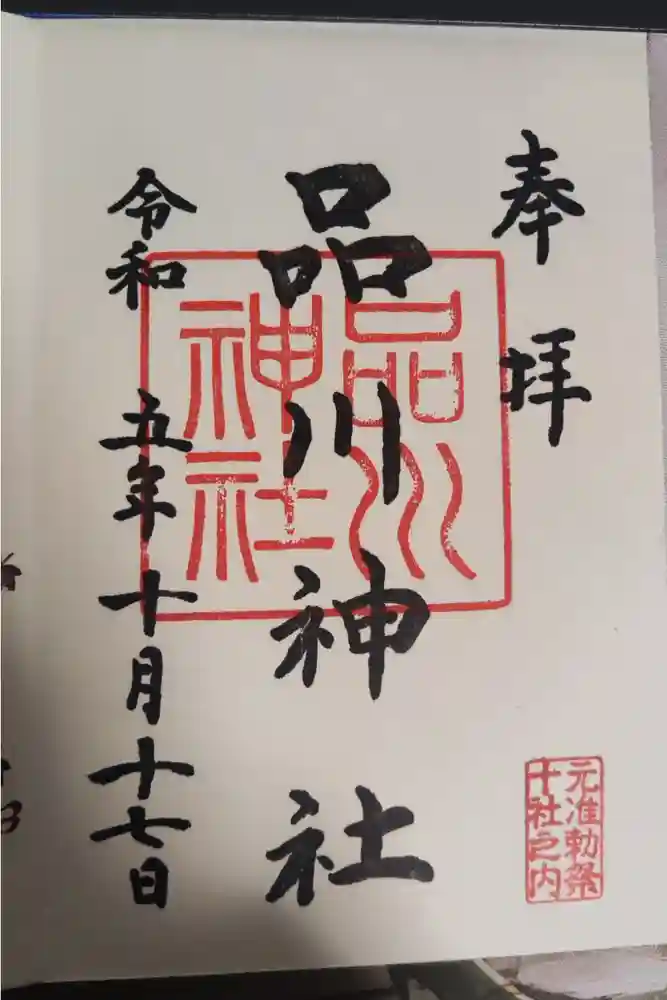 奉拝
品川神社
品川
神社
令和五年十月十七日
元准勅祭
十社之内